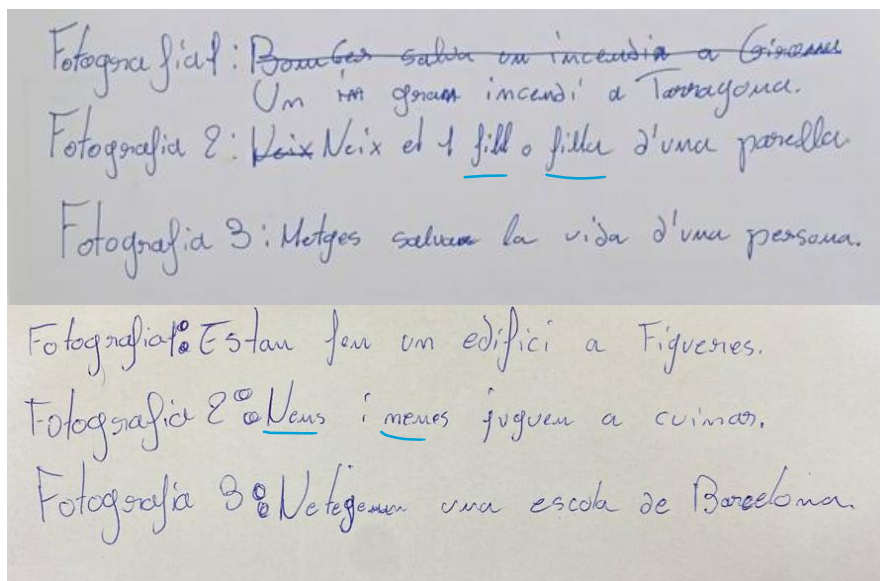 Fotografia 1: Bomber salva un incendia a Girona
Un gran incendi a Tarragona.
Fotografia 2: Neix Neix el 1 fill o filla d'una parella
Fotografia 3: Metges salvan la vida d'una persona.
Fotografia 1: Estan fen un edifici a Figueres.
Fotografia 2: Nens i nenes juguen a cuinar.
Fotografia 3: Netegen una escola de Barcelona.